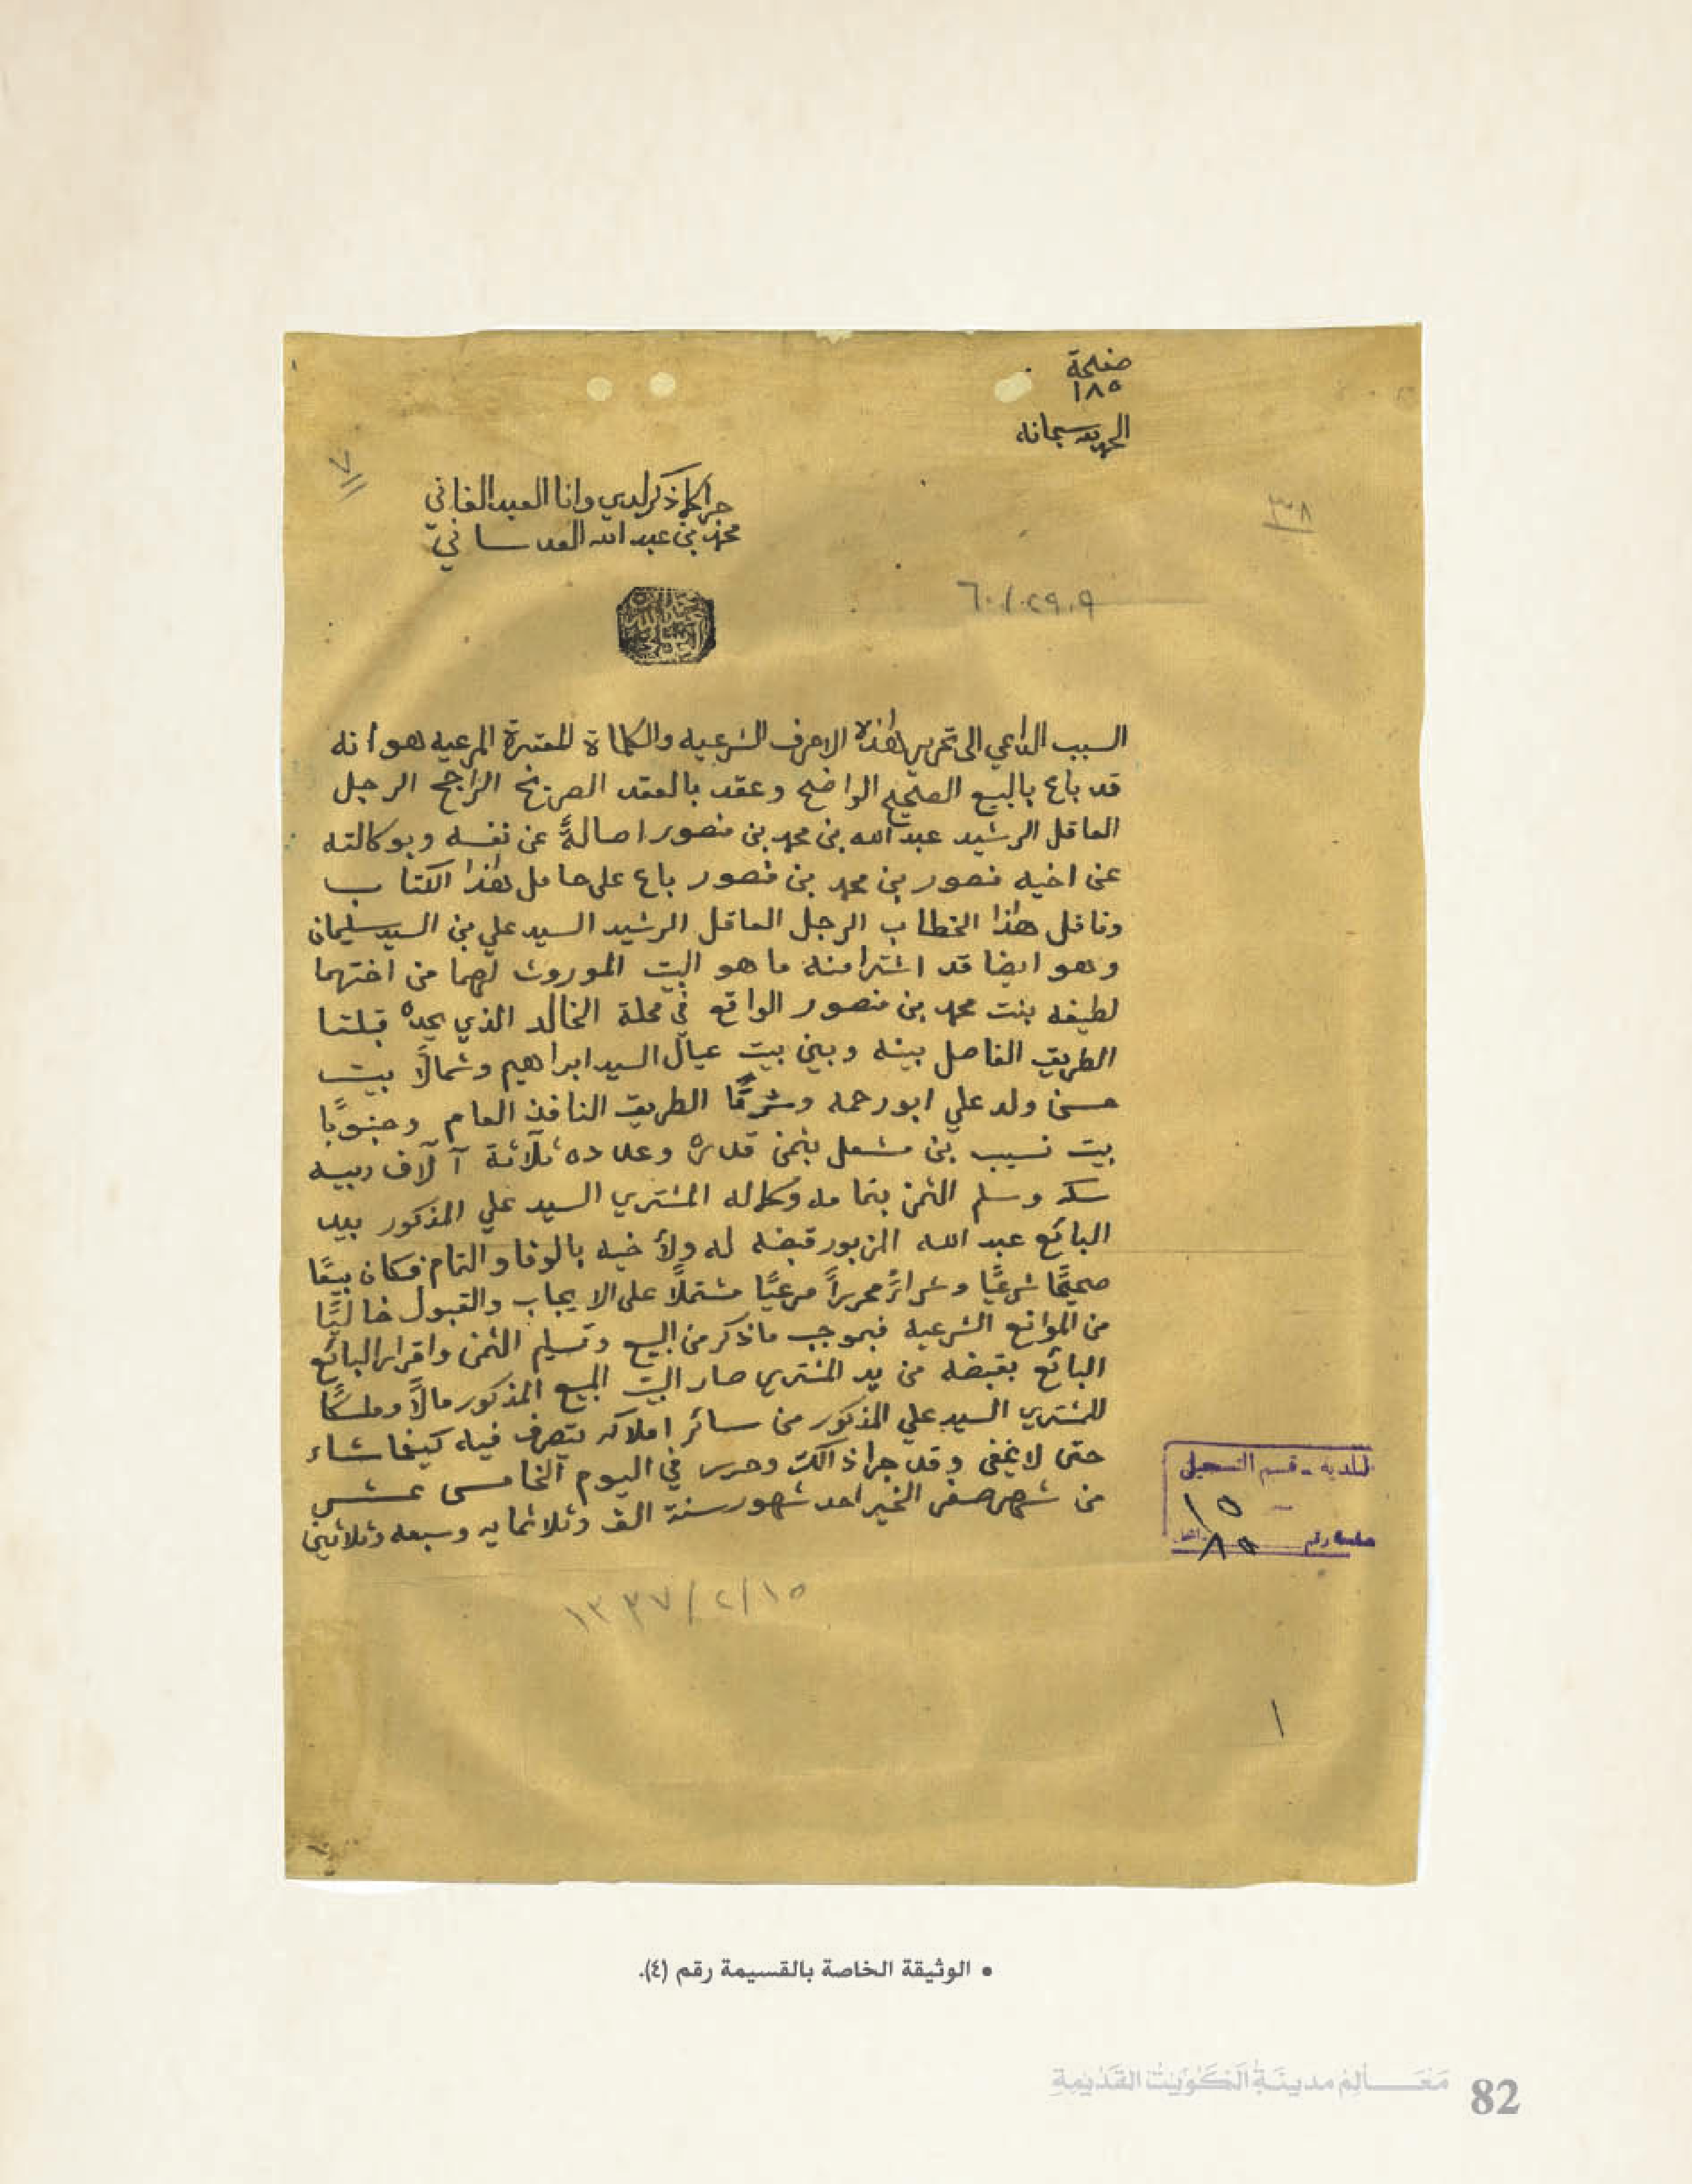 صفحة
١٨٥
الحمد لله سبحانه
٧
جرا كما ذكر لدي وانا العبد الفاني
محمد بن عبد الله العدساني
٣٨
السبب الداعي الى تحرير هذه الاحرف الشرعيه والكلماة المعتبرة المرعيه هو أنه
قد باع بالبيع الصحيح الواضح وعقد بالعقد الصريح الراجح الرجل
العاقل الرشيد عبد الله بن محمد بن منصور اصالةً عن نفسه وبوكالته
عن اخيه منصور بن محمد بن منصور باع على حامل هذا الكتاب
وناقل هذا الخطاب الرجل العاقل الرشيد السيد علي بن السيد سليمان
وهو ايضا قد اشترا منه ما هو البيت الموروث لهما من اختهما
لطيفه بنت محمد بن منصور الواقع في محلة الخالد الذي يحده قبلتا
الطريق الفاصل بينه وبين بيت عيال السيد ابراهيم وشمالًا بيت
حسن ولد علي ابورحمه وشرقًا الطريق النافذ العام وجنوبًا
بيت نسيب بن مشعل بثمن قدره وعدده ثلاثة آلاف ربيه
سكه وسلم الثمن بتمامه وكماله المشتري السيد علي المذكور بيد
البائع عبد الله المزبور قبضه له ولأخيه بالوفا والتمام فكان بيعًا
صحيحًا شرعيًا وشراءً محررًا مرعيًا مشتملًا على الايجاب والقبول خاليًا
من الموانع الشرعيه فبموجب ماذكر من البيع وتسليم الثمن واقرار البائع
البائع بقبضه من يد المشتري صار البيت المبيع المذكور مالًا وملكًا
للمشتري السيد علي المذكور من سائر املاكه يتصرف فيه كيفما شاء
حتى لا يخفى وقد جرا ذالك وحرر في اليوم الخامس عشر
من شهر صفر الخير احد شهور سنة الف وثلاثمايه وسبعه وثلاثين
البلديه - قسم التسجيل
١٥
رقم
٨٥
١٣٣٧/٢/١٥
١
• الوثيقة الخاصة بالقسيمة رقم (٤).
مَعَـالِمُ مدينَةِ الكُوَيْتْ القَدْيمِةِ
82